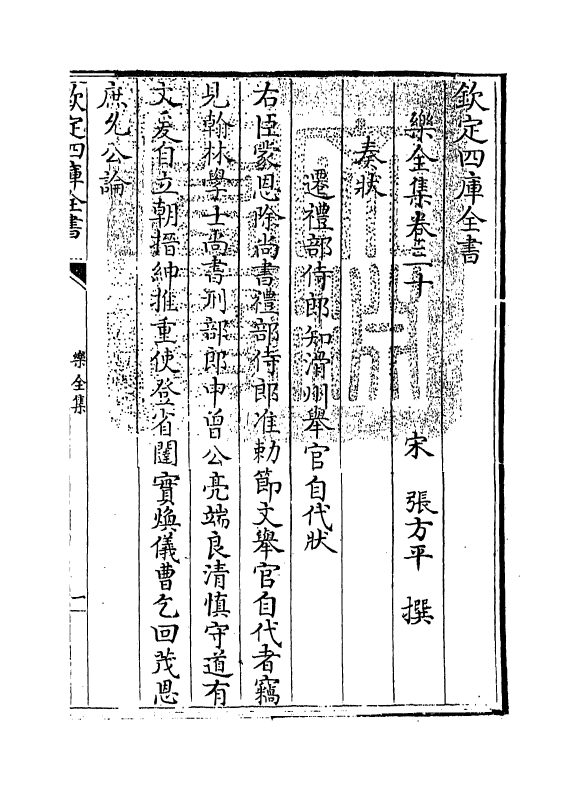 欽定四庫全書
樂全集卷三十
宋 張方平 撰
奏狀
遷禮部侍郎知滑州舉官自代狀
右臣蒙恩除尚書禮部侍郎准勅節文舉官自代者竊
見翰林學士尚書刑部郎中曾公亮端良清慎守道有
文爰自立朝搢紳推重使登省闥實煥儀曹乞回茂恩
庶允公論
欽定四庫全書
樂全集
一